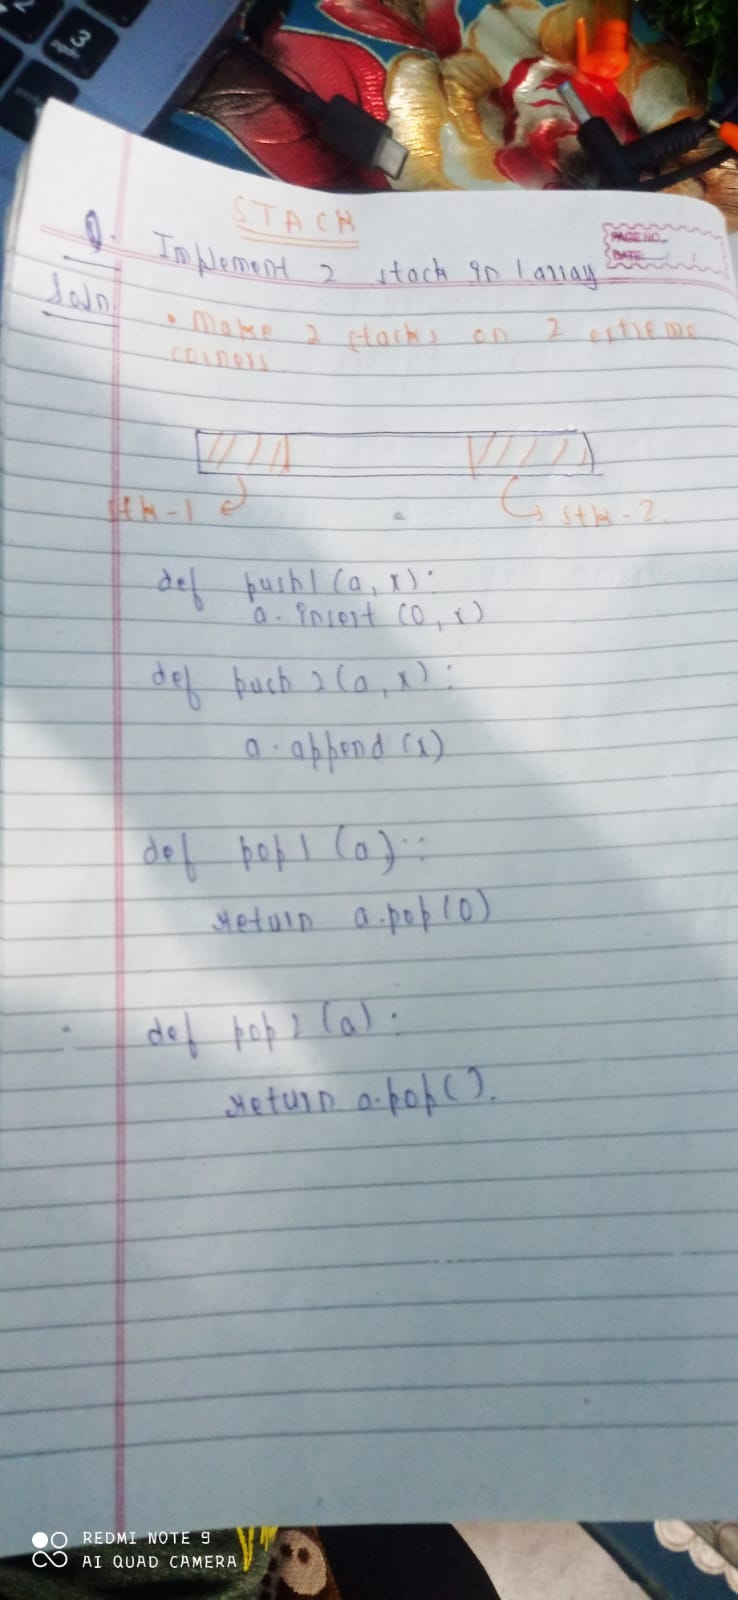 3
STACK
Q. Implement 2 stack in 1 array
PAGE NO.
DATE
Soln.
• Make 2 stacks on 2 extreme
corners.
stk-1
stk-2.
def push1(a,x):
a.insert(0,x)
def push2(a,x):
a.append(x)
def pop1(a):
return a.pop(0)
def pop2(a):
return a.pop().
REDMI NOTE 9
AI QUAD CAMERA